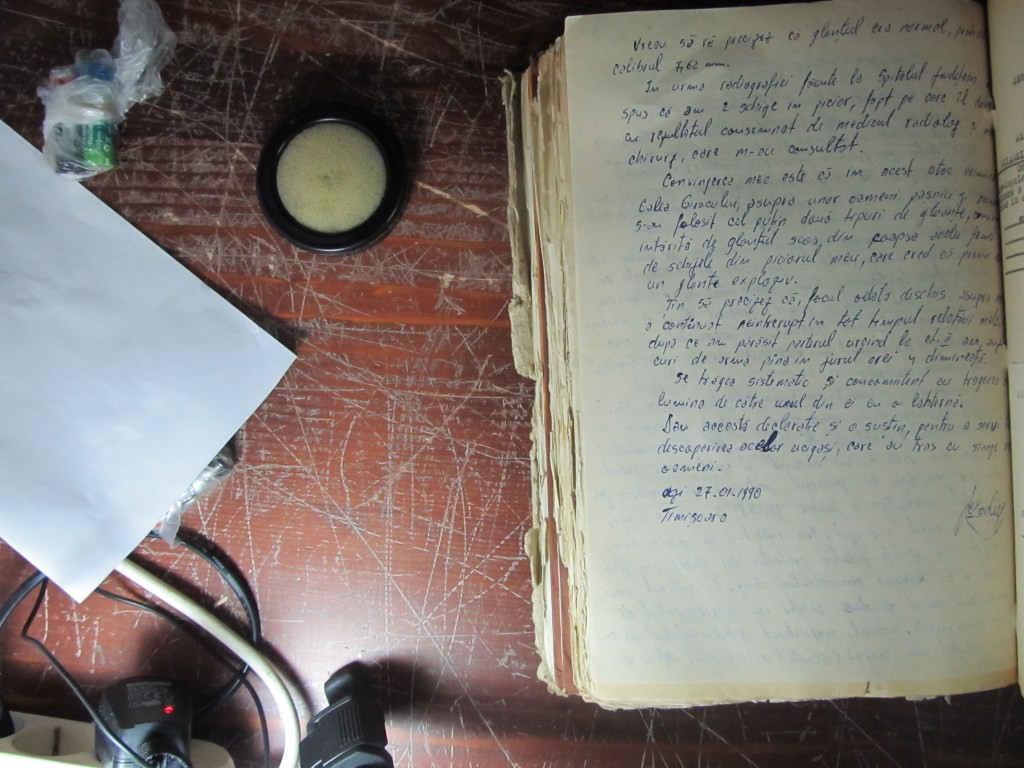 Vreau să vă precizez că glonțul era normal,
calibrul 7,62 mm.
In urma radiografiei făcute la Spitalul
spus că am 2 schije in picior, fapt pe care il
cu rezultatul consemnat de medicul radiolog și
chirurg, care m-au consultat.
Convingerea mea este că im acest atac
Calea Girocului, asupra unor oameni pașnici și
s-au folosit cel puțin două tipuri de gloanțe,
intărită de glonțul scos din coapsa
de schijele din piciorul meu, care cred că provin
un glonte exploziv.
Țin să precizez că, focul odată deschis asupra
a continuat neintrerupt in tot timpul relatării mele,
după ce am părăsit parterul urcind la et. II am
curi de armă pină in jurul orei 4 dimineață.
Se trăgea sistematic și concomitent cu tragerea
lumina de către unul din ei cu o lanternă.
Dau această declarație și o susțin, pentru a servi
descoperirea acelor ucigași, care au tras cu
oameni.
azi 27-01-1990
Timișoara